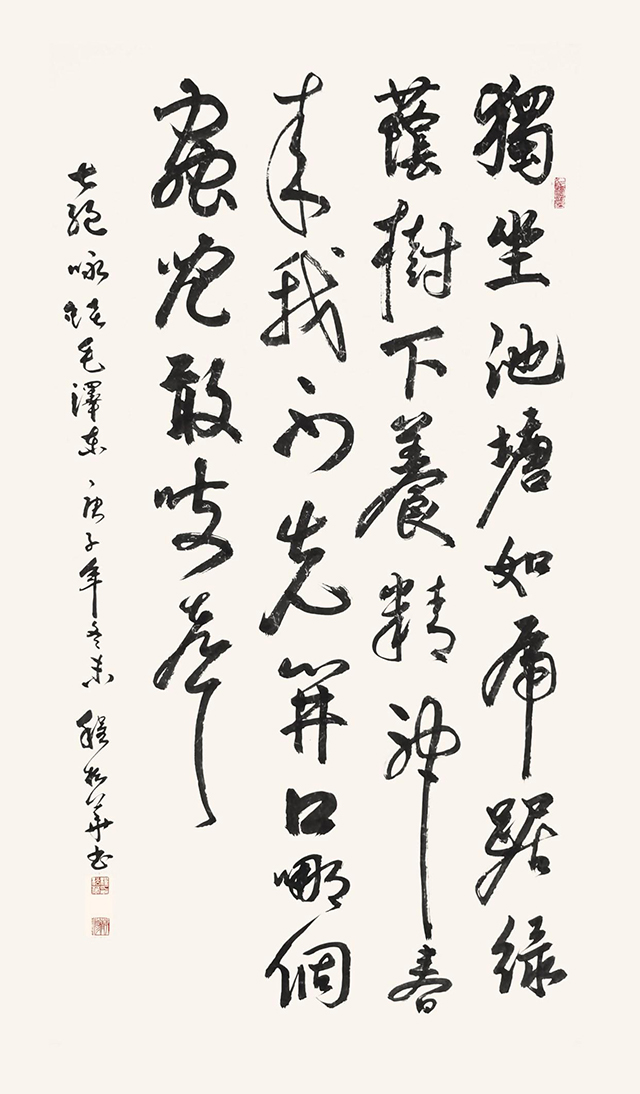 獨坐池塘如虎踞綠
蔭樹下養精神春
來我不先開口哪個
蟲兒敢吱聲
七絕咏蛙毛澤東庚子年冬末程松華書